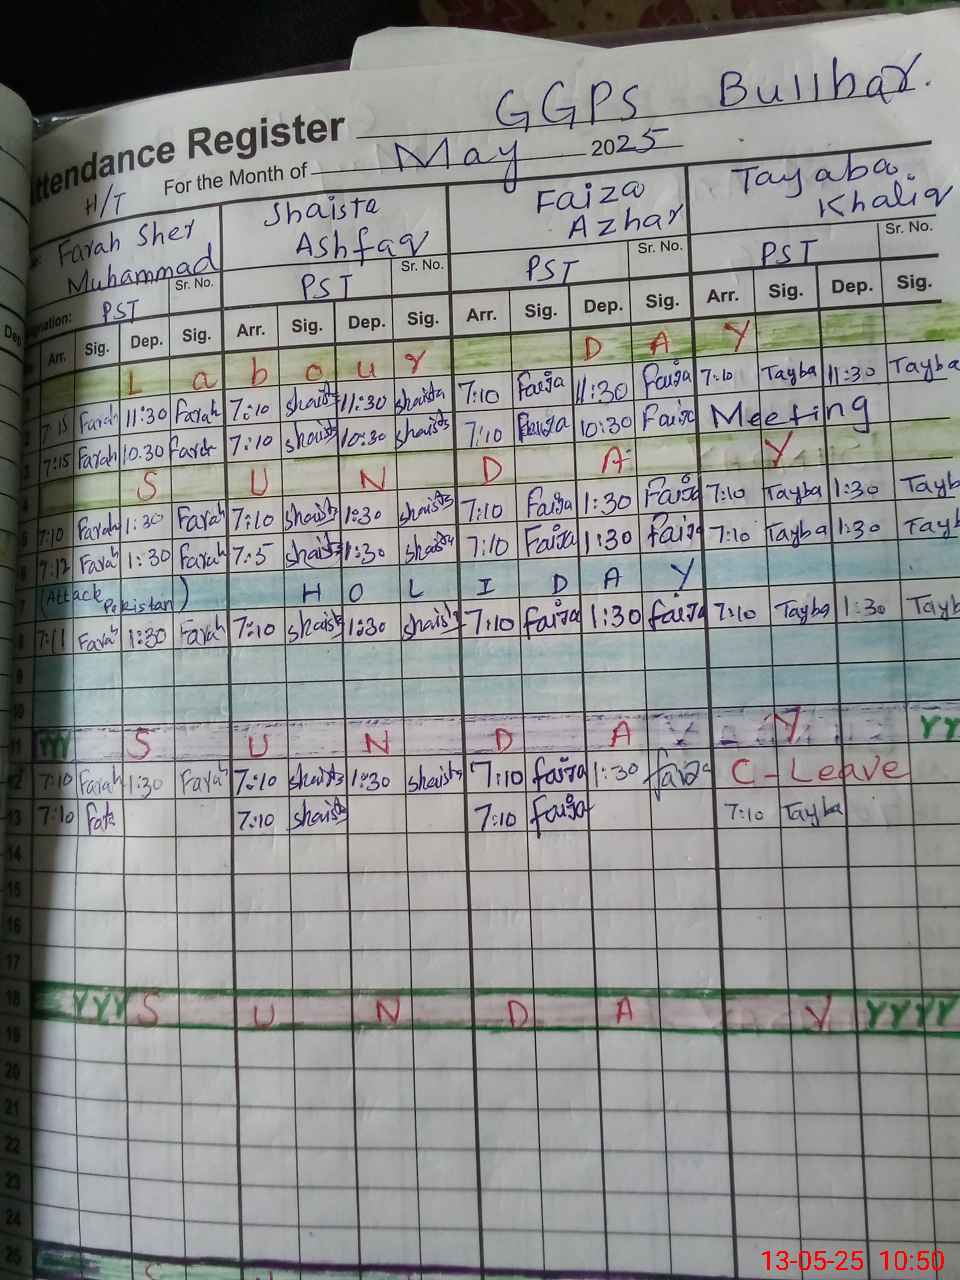 GGPS Bullbar.
Attendance Register
For the Month of May 2025
H/T
Farah Sher Muhammad
Shaista Ashfaq
Faiza Azhar
Tayaba Khaliq
PST Sr. No. PST Sr. No. PST Sr. No. PST Sr. No.
Arr. Sig. Dep. Sig. Arr. Sig. Dep. Sig. Arr. Sig. Dep. Sig. Arr. Sig. Dep. Sig.
Labour DAY
2 7:15 Farah 11:30 Farah 7:10 shaista 11:30 shaista 7:10 Faiza 11:30 Faiza 7:10 Tayba 11:30 Tayba
3 7:15 Farah 10:30 Farah 7:10 shaista 10:30 shaista 7:10 Faiza 10:30 Faiza Meeting
4 SUNDAY
5 7:10 Farah 1:30 Farah 7:10 shaista 1:30 shaista 7:10 Faiza 1:30 Faiza 7:10 Tayba 1:30 Tayb
6 7:12 Farah 1:30 Farah 7:5 shaista 1:30 shaista 7:10 Faiza 1:30 faiza 7:10 Tayba 1:30 Tayb
7 (Attack Pakistan) HOLIDAY
8 7:11 Farah 1:30 Farah 7:10 shaista 1:30 shaista 7:10 faiza 1:30 faiza 7:10 Tayba 1:30 Tayb
9
10
11 YYY SUNDAY YY
12 7:10 Farah 1:30 Farah 7:10 shaista 1:30 shaista 7:10 faiza 1:30 faiza C-Leave
13 7:10 7:10 shaista 7:10 faiza 7:10 Tayba
14
15
16
17
18 YYY SUNDAY YYYY
19
20
21
22
23
24
25
13-05-25 10:50